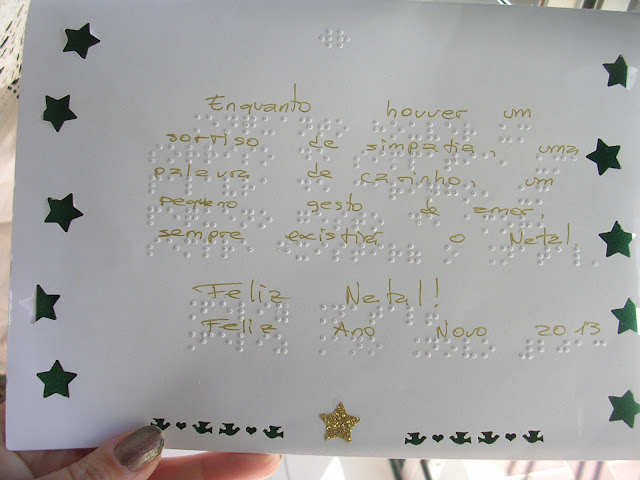 Enquanto houver um
sorriso de simpatia, uma
palavra de carinho, um
pequeno gesto de amor,
sempre existirá o Natal.
Feliz Natal!
Feliz Ano Novo 2013